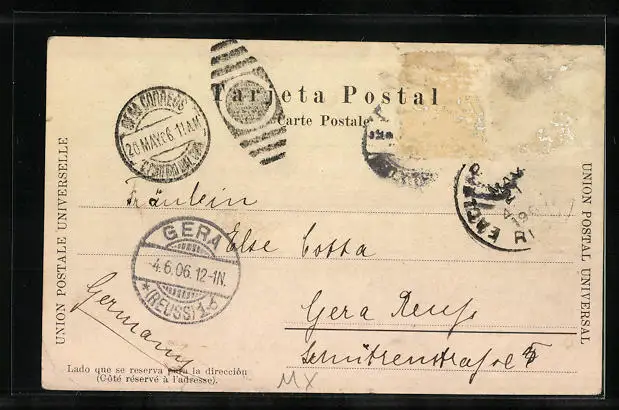 Tarjeta Postal
Carte Postale
UNION POSTALE UNIVERSELLE
UNION POSTAL UNIVERSAL
CORREOS
26 MAY 06 11 AM
GERA
-4.6.06.12-1N.
*(REUSS)1.b
Fräulein
Else Cotta
Gera Reuß
Germany
Lado que se reserva para la dirección
(Côté réservé à l'adresse).
MX